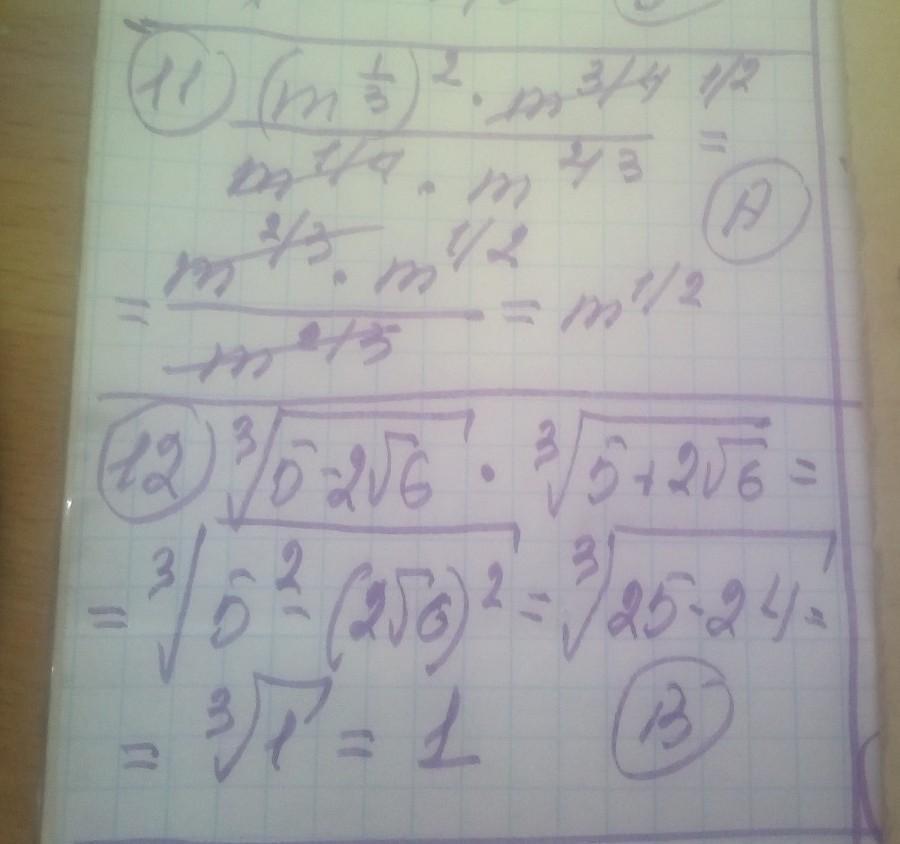 11) (m^{1/3})^2 · m^{3/4} 1/2
—————————— =
m^{1/4} · m^{2/3}
A
m^{2/3} · m^{1/2}
= —————— = m^{1/2}
m^{2/3}
12) ∛(5-2√6) · ∛(5+2√6) =
= ∛(5^2-(2√6)^2) = ∛(25-24) =
= ∛1 = 1 B